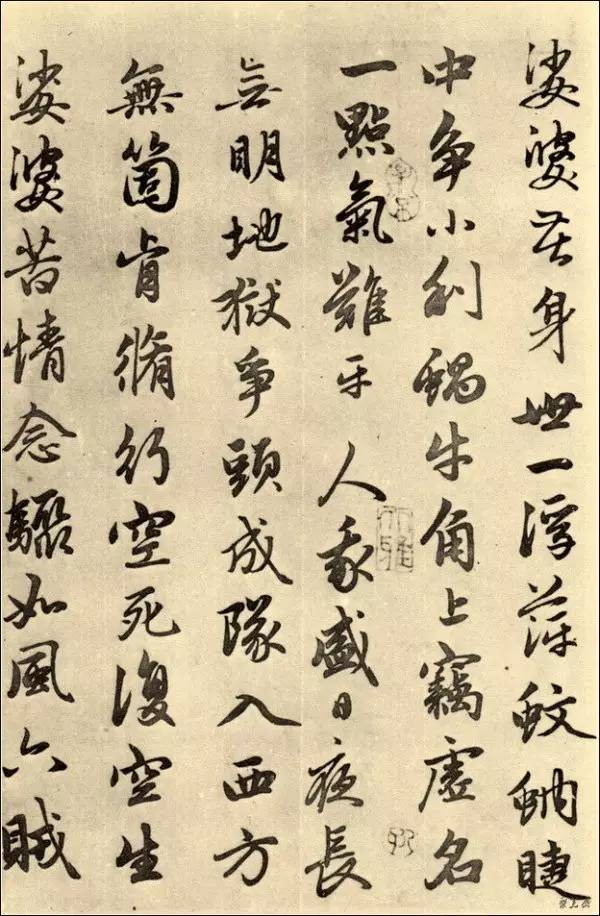 娑婆苦身世一浮萍蚊蚋睫
中争小利蝸牛角上竊虛名
一點氣難平人我盛日夜長
無明地獄爭頭成隊入西方
無箇肯脩行空死復空生
娑婆苦情念驟如風六賊